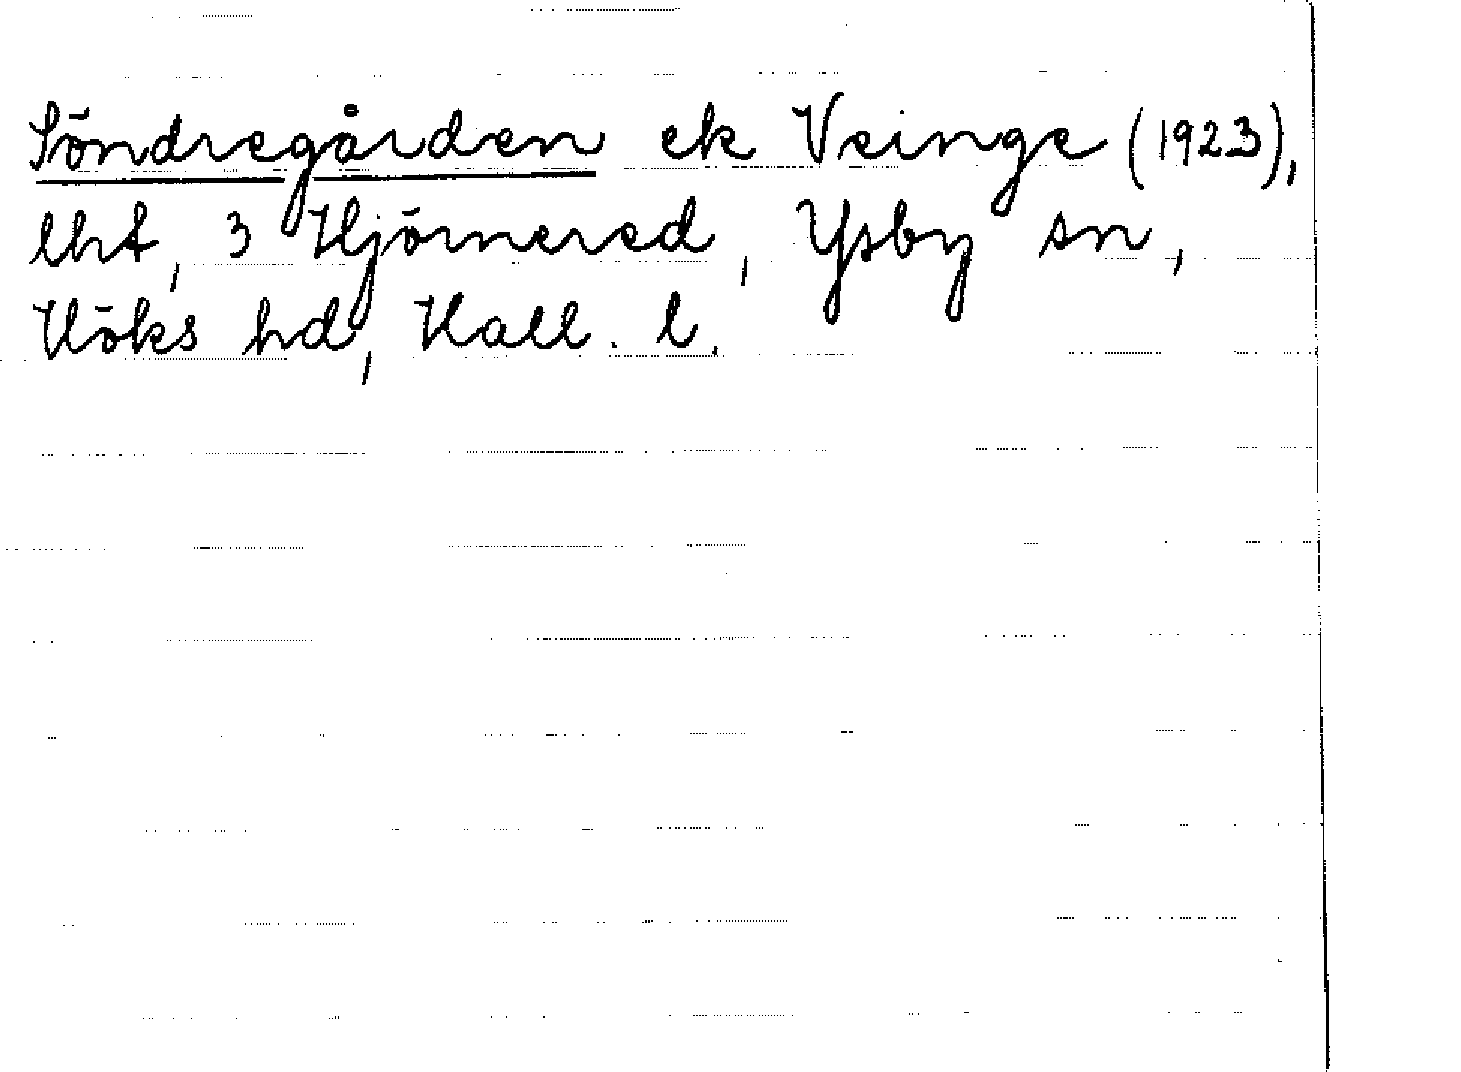 Söndregården ek Veinge (1923),
lht, 3 Hjörnered, Ysby sn,
Höks hd, Hall. l.